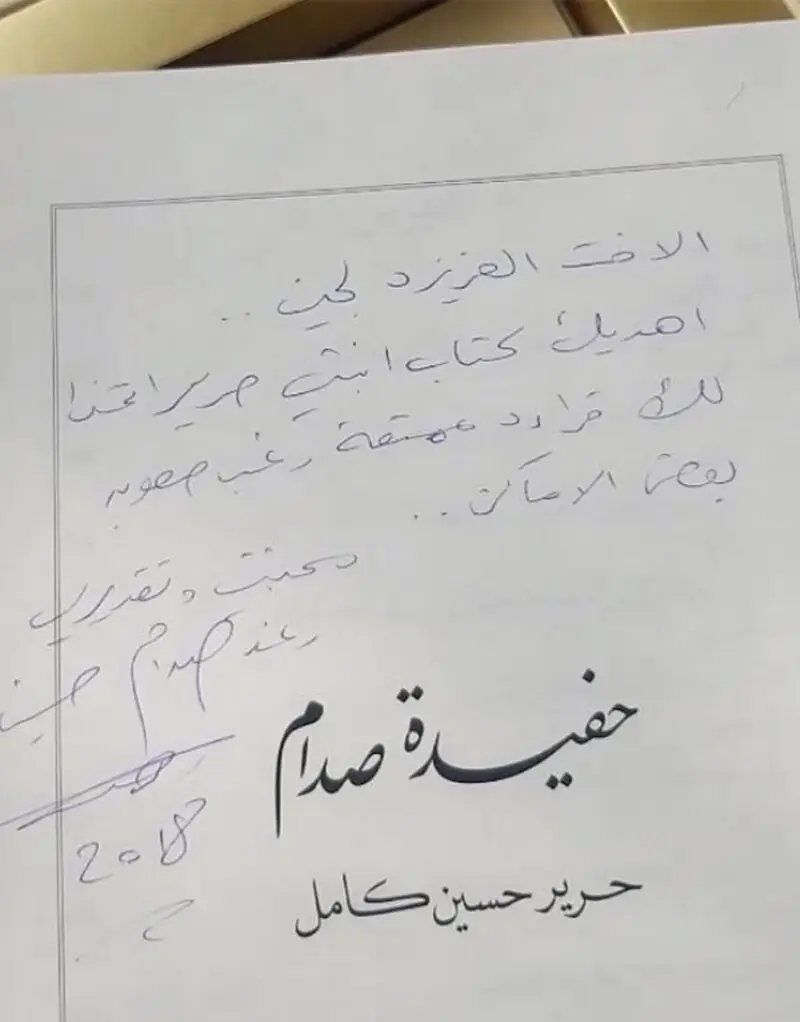 الاخت العزيزه لجين ..
اهديك كتاب ابنتي حرير اتمنا
لك قراءه ممتعة رغب صعوبه
بعض الاماكن ..
محبتي وتقديري
رغد صدام حسين
2018
حفيدة صدام
حرير حسين كامل